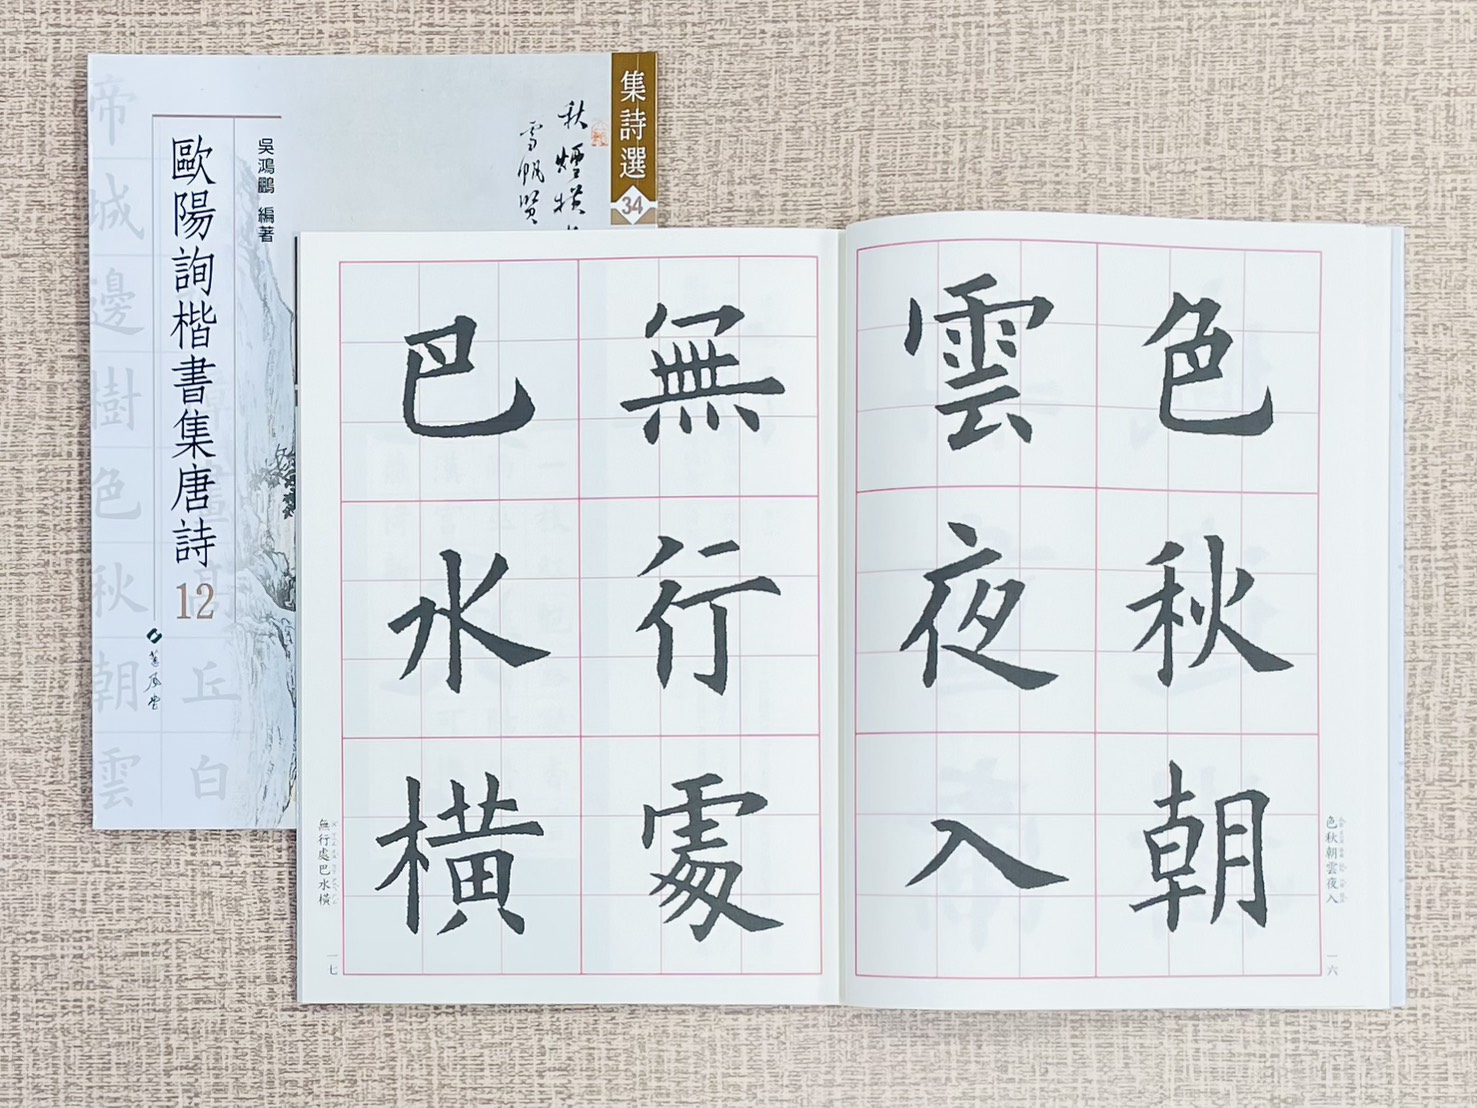 集詩選
34
秋煙橫
雪帆賢
吳鴻鵬 編著
歐陽詢楷書集唐詩
12
蕙風堂
帝城邊樹色秋朝雲
丘白
色秋朝
雲夜入
無行處
巴水橫
色秋朝雲夜入
一六
無行處巴水橫
一七